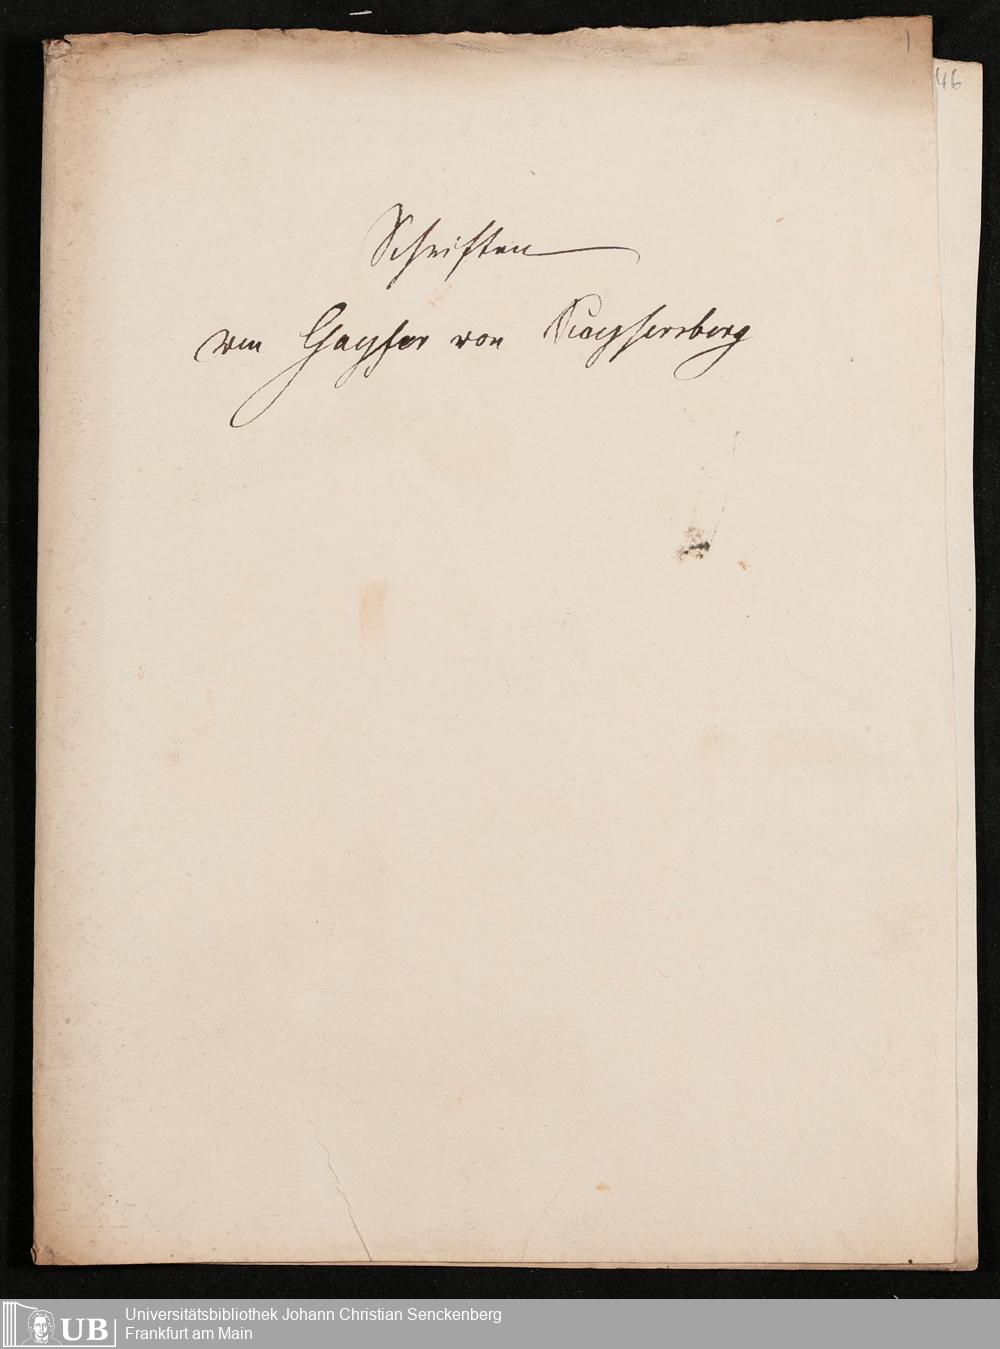 1
46
Schriften
von Gayler von Kaysersberg
UB
Universitätsbibliothek Johann Christian Senckenberg
Frankfurt am Main